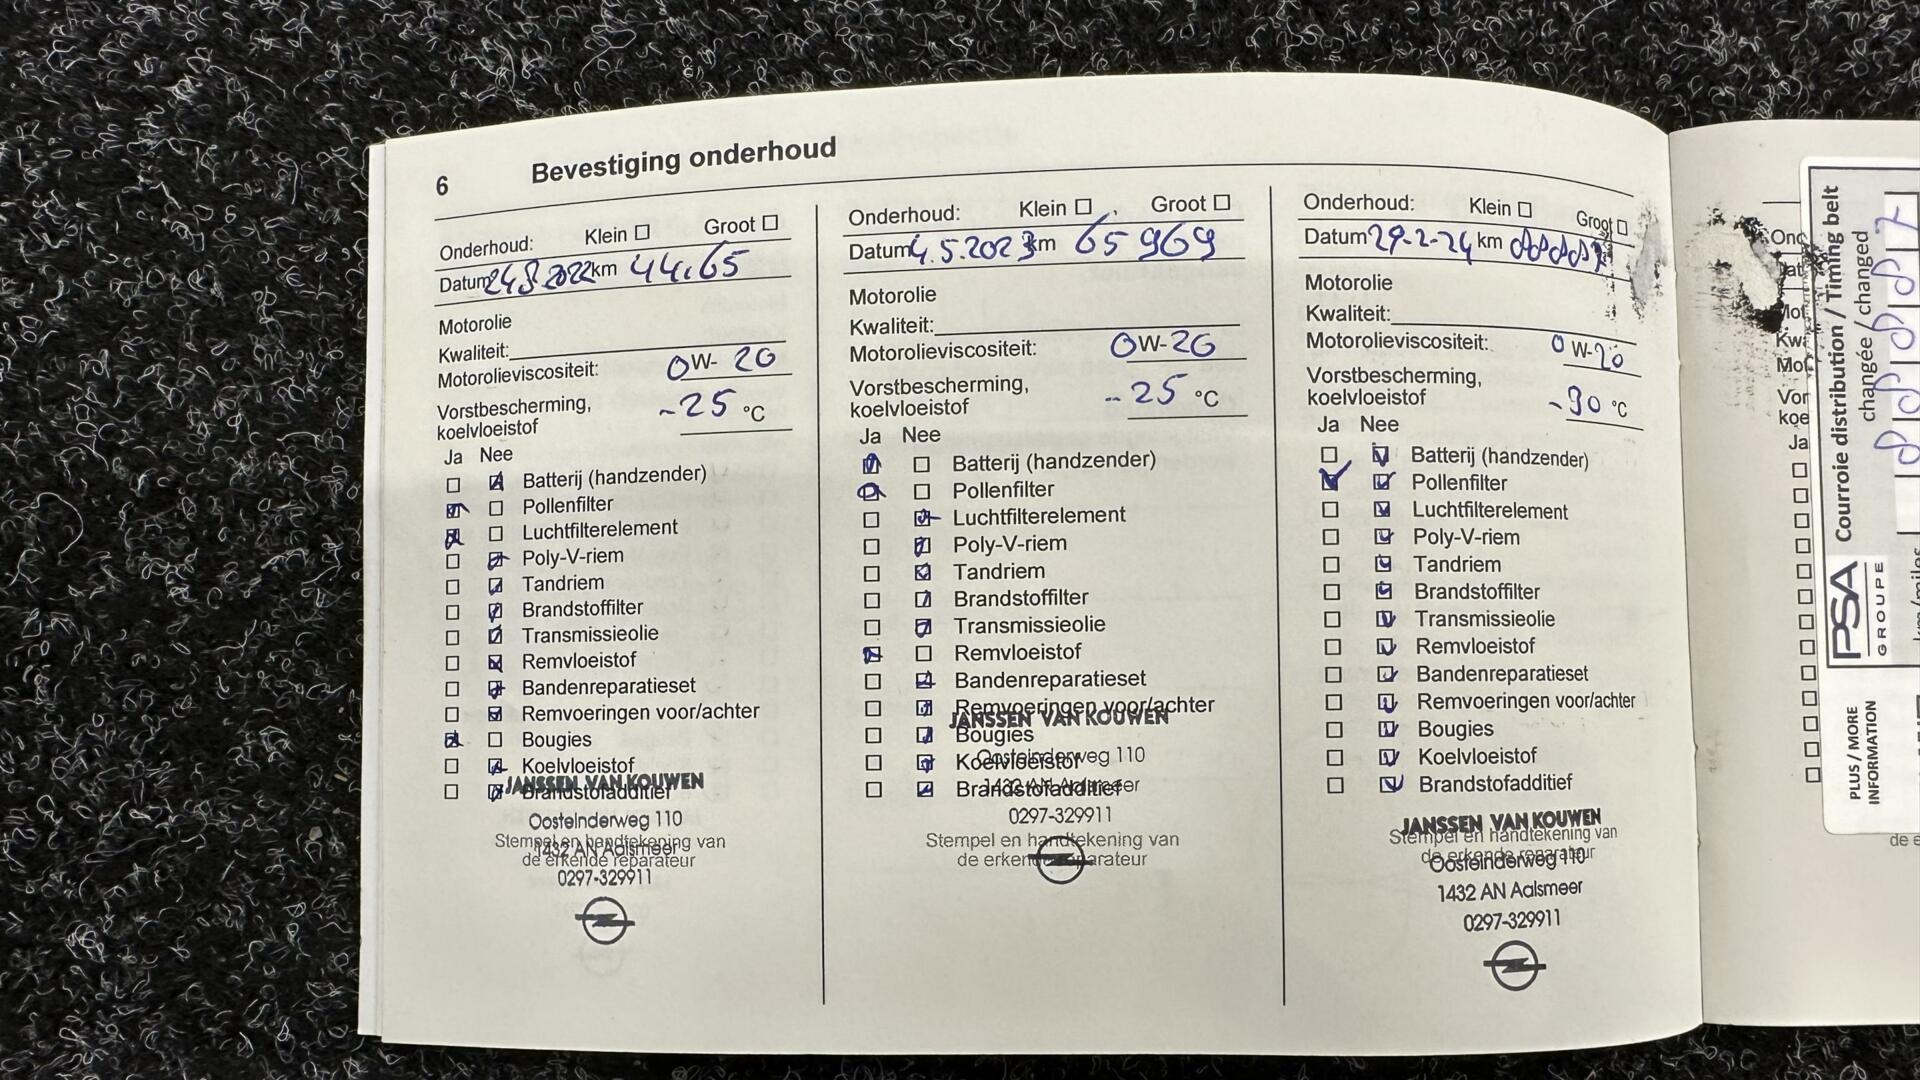 6 Bevestiging onderhoud
Onderhoud: Klein Groot
Datum 24.8.2022 km 44.65
Motorolie
Kwaliteit:
Motorolieviscositeit: 0W-20
Vorstbescherming,
koelvloeistof -25 °C
Ja Nee
Batterij (handzender)
Pollenfilter
Luchtfilterelement
Poly-V-riem
Tandriem
Brandstoffilter
Transmissieolie
Remvloeistof
Bandenreparatieset
Remvoeringen voor/achter
Bougies
Koelvloeistof
Brandstofadditief
JANSSEN VAN KOUWEN
Oosteinderweg 110
Stempel en handtekening van
1432 AN Aalsmeer
de erkende reparateur
0297-329911
Onderhoud: Klein Groot
Datum 4.5.2023 km 65969
Motorolie
Kwaliteit:
Motorolieviscositeit: 0W-20
Vorstbescherming,
koelvloeistof -25 °C
Ja Nee
Batterij (handzender)
Pollenfilter
Luchtfilterelement
Poly-V-riem
Tandriem
Brandstoffilter
Transmissieolie
Remvloeistof
Bandenreparatieset
Remvoeringen voor/achter
JANSSEN VAN KOUWEN
Bougies
Oosteinderweg 110
Koelvloeistof
1432 AN Aalsmeer
Brandstofadditief
0297-329911
Stempel en handtekening van
de erkende reparateur
Onderhoud: Klein Groot
Datum 29-2-24 km
Motorolie
Kwaliteit:
Motorolieviscositeit: 0W-20
Vorstbescherming,
koelvloeistof -30 °C
Ja Nee
Batterij (handzender)
Pollenfilter
Luchtfilterelement
Poly-V-riem
Tandriem
Brandstoffilter
Transmissieolie
Remvloeistof
Bandenreparatieset
Remvoeringen voor/achter
Bougies
Koelvloeistof
Brandstofadditief
JANSSEN VAN KOUWEN
Stempel en handtekening van
de erkende reparateur
Oosteinderweg 110
1432 AN Aalsmeer
0297-329911
Ond
Mot
Kwa
Mot
Vor
koe
Ja
Courroie distribution / Timing belt
changée / changed
PSA
GROUPE
km/miles
PLUS / MORE
INFORMATION
de e